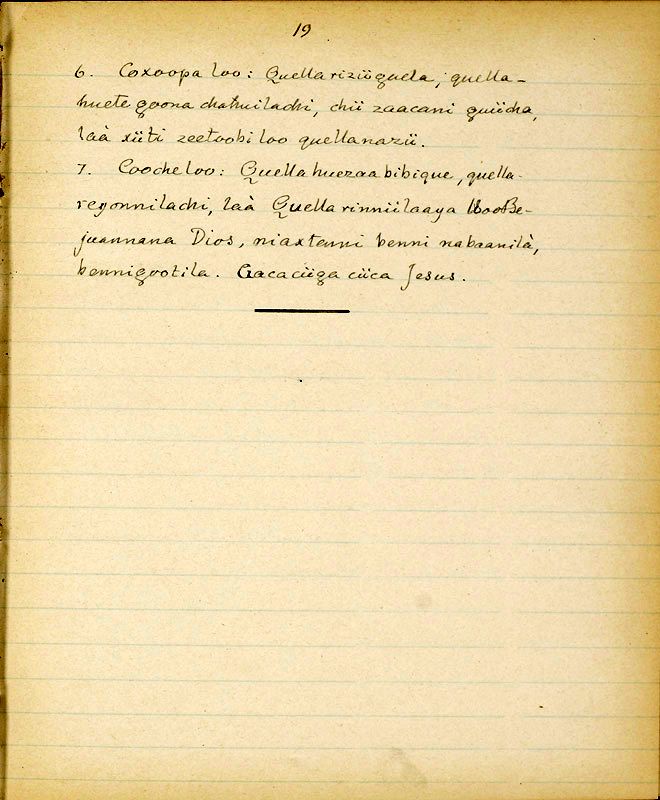 19
6. Coxoopa loo: Quella riziiguela, quella-
huete goona chahuilachi, chii zaacani guiicha,
laà xiiti zeetoobi loo quellanazii.
7. Coocheloo: Quella huezaa bibique, quella-
reyonnilachi, laà Quella rinniilaaya LooBe-
juannana Dios, niaxtenni benni nabaanilà,
bennigootila. Cacaciiga ciica Jesus.